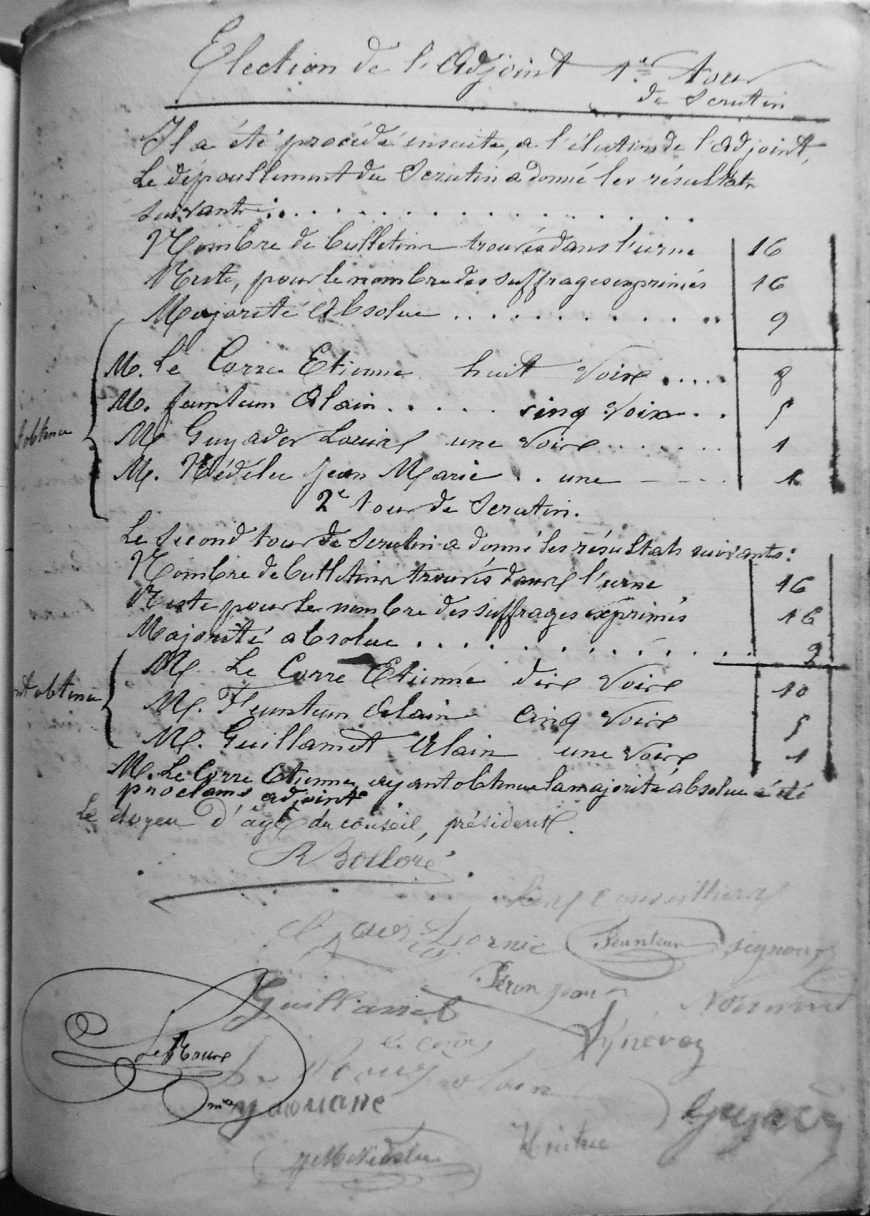 Election de l'Adjoint 1er tour
de Scrutin
Il a été procédé ensuite, a l'élection de l'adjoint,
Le dépouillement du Scrutin a donné les résultats
suivants : . . . . . . . . . . . . . . . .
Nombre de bulletins trouvés dans l'urne 16
Reste, pour le nombre des suffrages exprimés 16
Majorité Absolue . . . . . . . . . . . 9
M. Le Corre Etienne huit Voix . . . . 8
M. Funtun Alain . . . . . cinq Voix . . 5
obtenu
M. Guyader Louis une Voix . . . . . . 1
M. Nédélec Jean Marie . . une 1
2e tour de Scrutin.
Le Second tour de Scrutin a donné les résultats suivants :
Nombre de bulletins trouvés dans l'urne 16
Reste pour le nombre des suffrages exprimés 16
Majorité absolue . . . . . . . . . . . . . . 9
M. Le Corre Etienne dix Voix 10
obtenu
M. Funtun Alain cinq Voix 5
M. Guillamet Alain une Voix 1
M. Le Corre Etienne ayant obtenu la majorité absolue a été
proclamé adjoint
Le doyen d'âge du conseil, président.
R Bolloré
Les Conseillers
Lornic Feunteun Signour
Peron Jean Normand
Le Roux